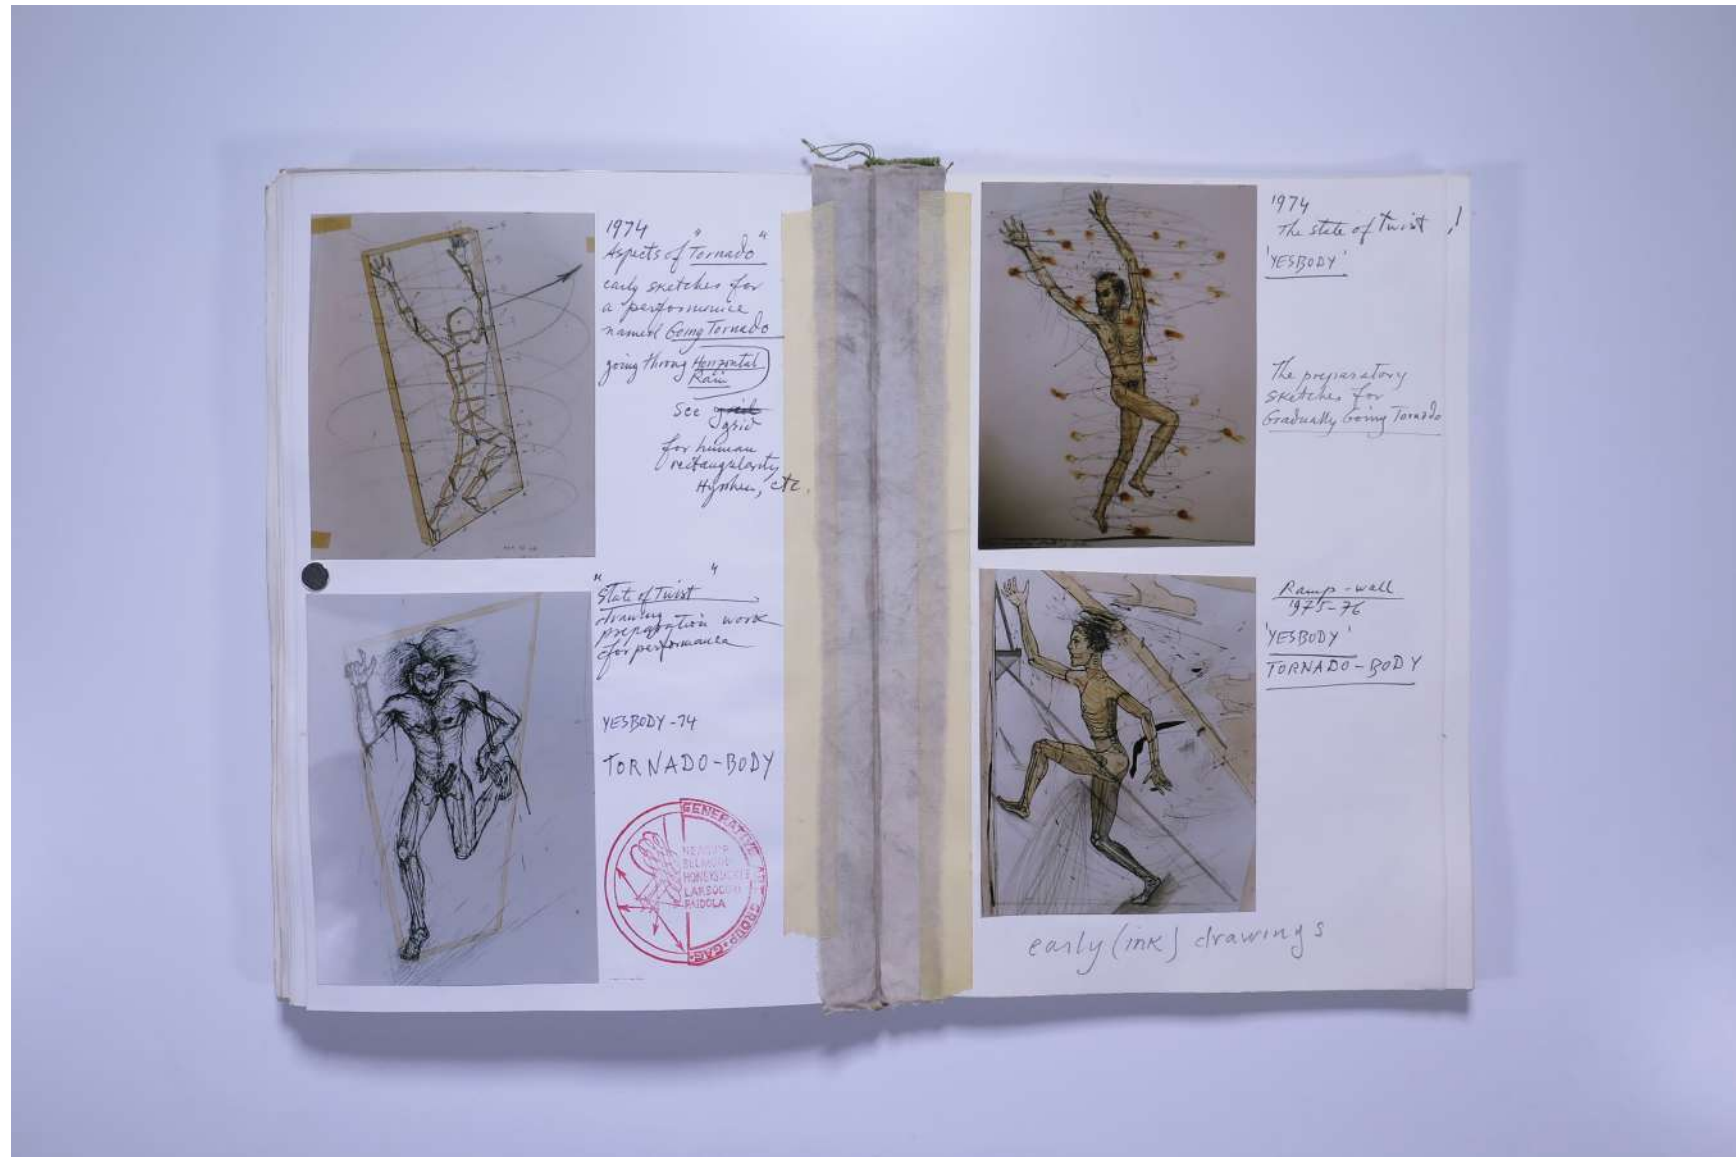 1974
Aspects of "Tornado"
early sketches for
a performance
named Going Tornado
going throug Horizontal
Rain
see grid
grid
for human
rectangularity
etc.
"State of Twist"
drawing
preparation work
for performance
YESBODY-74
TORNADO-BODY
GENERATIVE ART GROUP·GAG·
BELMOOD
HONEYSUCKLE
PAIDOLA
1974
The state of Twist !
'YESBODY'
The preparatory
sketches for
Gradually Going Tornado
Ramp-wall
1975-76
'YESBODY'
TORNADO-BODY
early (ink) drawings